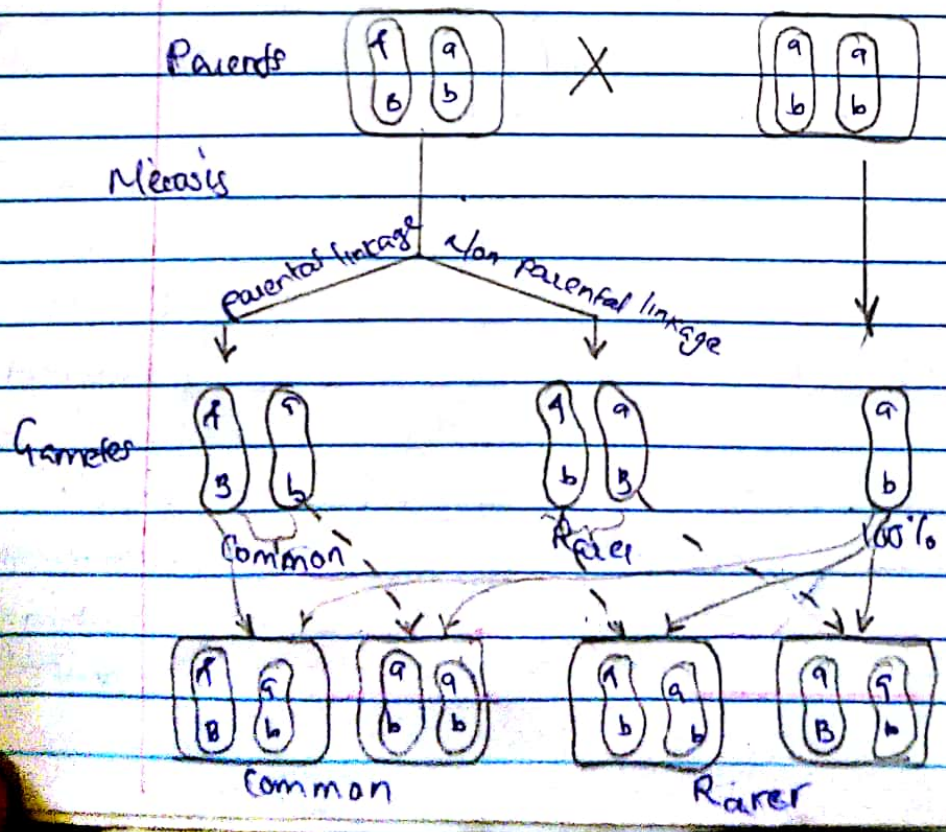 Parents
A a
B b
X
a a
b b
Meiosis
parental linkage
Non parental linkage
Gametes
A a
B b
A a
b B
a
b
Common
Rarer
100%
A a
B b
a a
b b
A a
b b
a a
B b
Common
Rarer